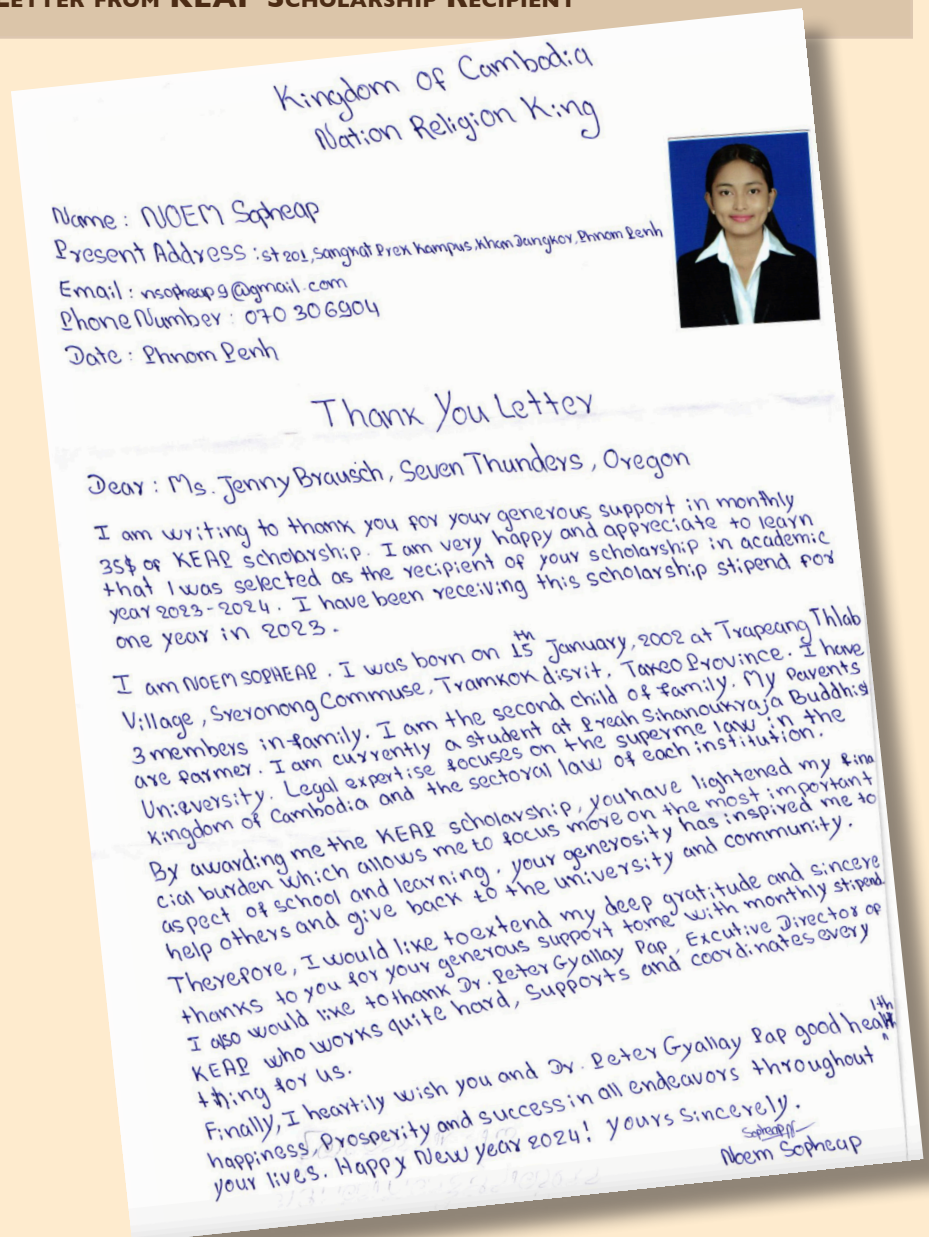 LETTER FROM KEAP SCHOLARSHIP RECIPIENT
Kingdom of Cambodia
Nation Religion King
Name : NOEM Sopheap
Present Address : st 201, Sangkat Prek Kampus, Khan Dangkor, Phnom Penh
Email : nsopheap9@gmail.com
Phone Number : 070 306904
Date : Phnom Penh
Thank You Letter
Dear : Ms. Jenny Brausch, Seven Thunders, Oregon
I am writing to thank you for your generous support in monthly
35$ of KEAP scholarship. I am very happy and appreciate to learn
that I was selected as the recipient of your scholarship in academic
year 2023-2024. I have been receiving this scholarship stipend for
one year in 2023.
I am NOEM SOPHEAP. I was born on 15th January, 2002 at Trapeang Thlab
Village, Sreronong Commuse, Tramkok disrit, Takeo Province. I have
3 members in family. I am the second child of family. My Parents
are farmer. I am currently a student at Preah Sihanoukraja Buddhist
University. Legal expertise focuses on the superme law in the
Kingdom of Cambodia and the sectoral law of each institution.
By awarding me the KEAP scholarship, you have lightened my finan
cial burden which allows me to focus more on the most important
aspect of school and learning. your generosity has inspired me to
help others and give back to the university and community.
Therefore, I would like to extend my deep gratitude and sincere
thanks to you for your generous support to me with monthly stipend
I also would like to thank Dr. Peter Gyallay Pap, Excutive Director of
KEAP who works quite hard, Supports and coordinates every
thing for us.
Finally, I heartily wish you and Dr. Peter Gyallay Pap good health
happiness, Prosperity and success in all endeavors throughout
your lives. Happy New year 2024! Yours Sincerely.
Noem Sopheap